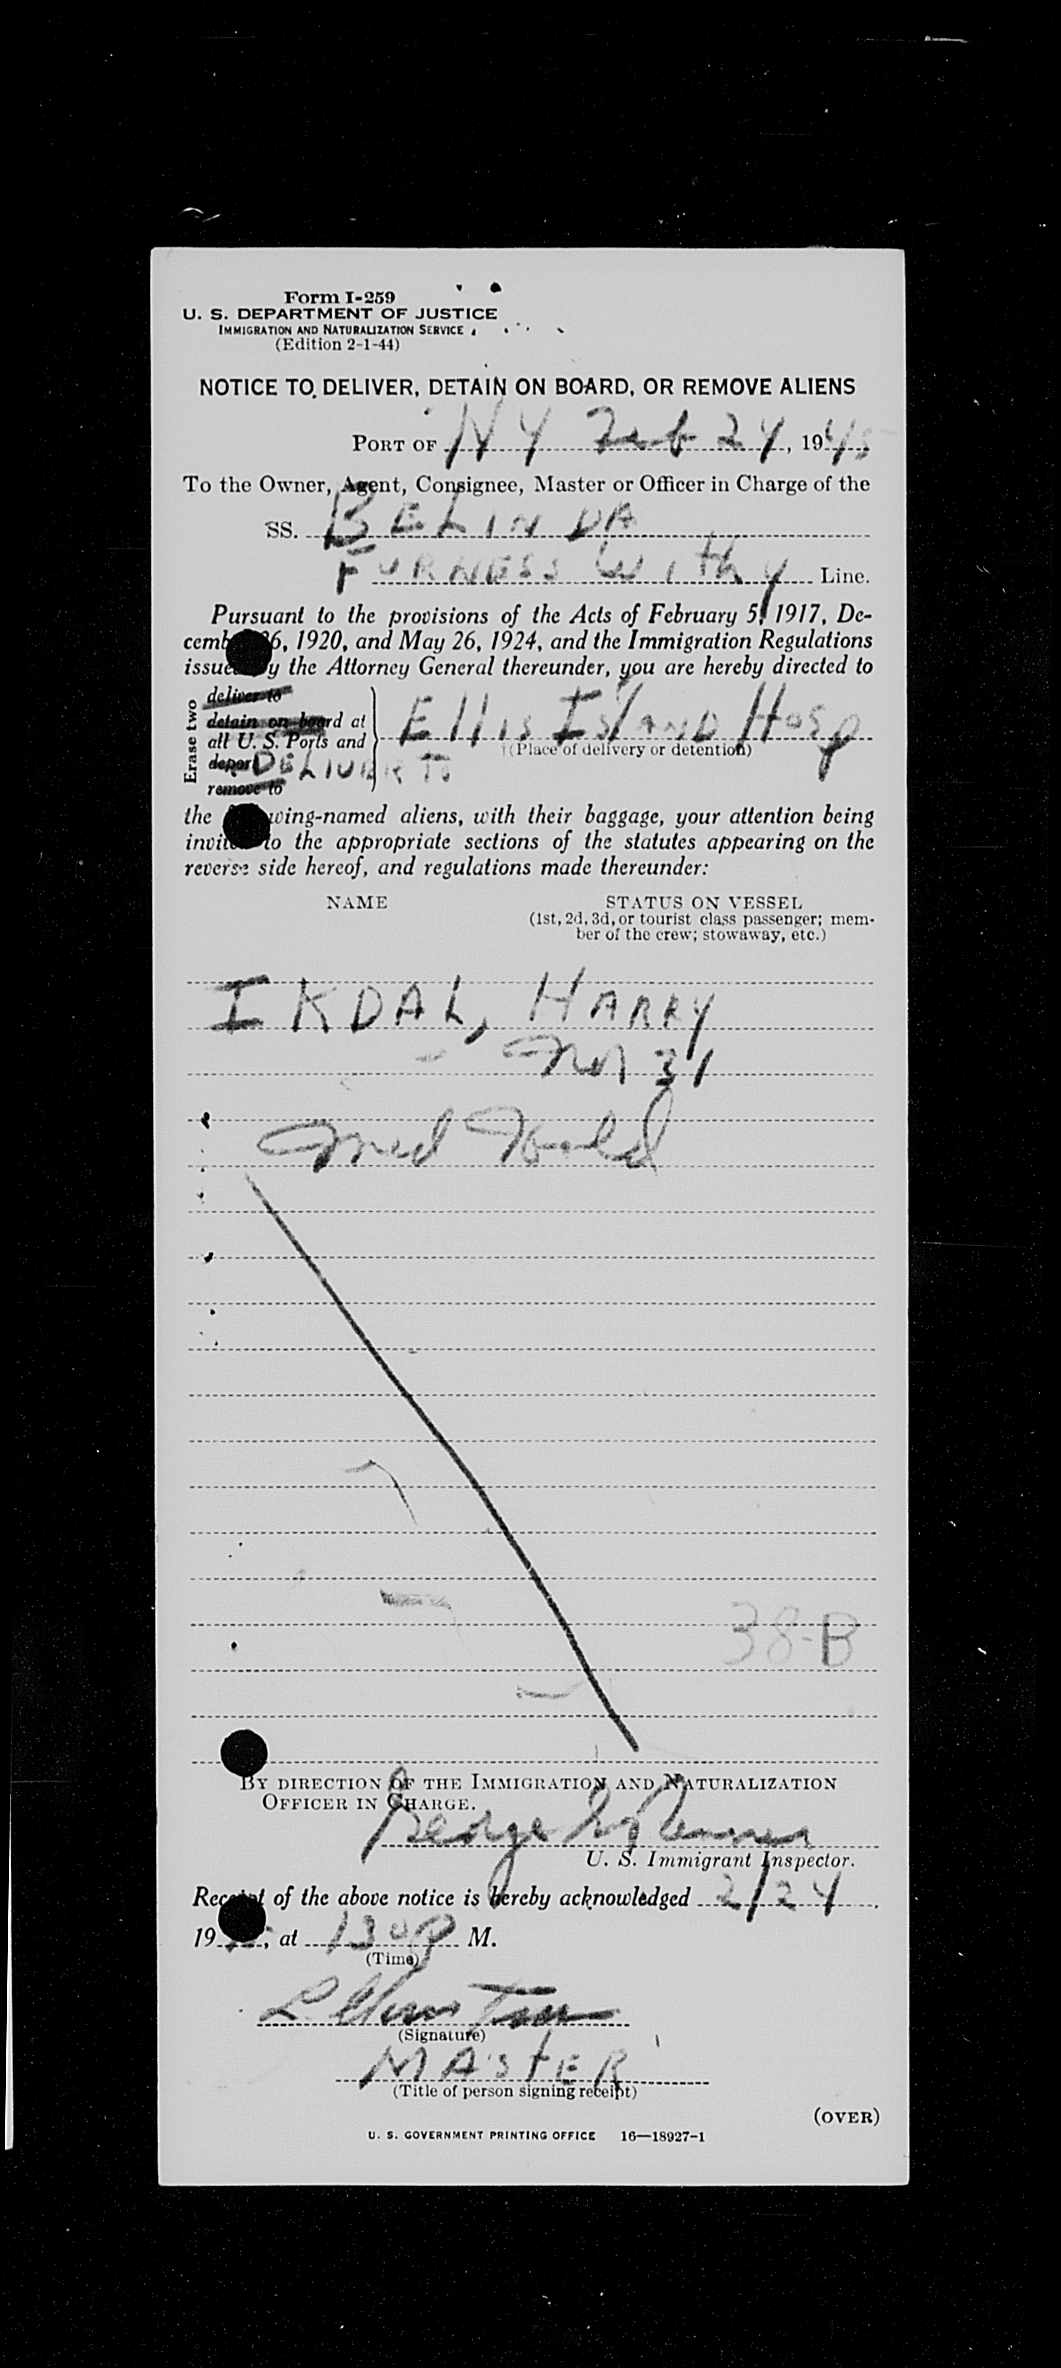 Form I-259
U. S. DEPARTMENT OF JUSTICE
IMMIGRATION AND NATURALIZATION SERVICE
(Edition 2-1-44)
NOTICE TO DELIVER, DETAIN ON BOARD, OR REMOVE ALIENS
PORT OF NY Feb 24, 1945
To the Owner, Agent, Consignee, Master or Officer in Charge of the
SS. BELINDA
FURNESS Withy Line.
Pursuant to the provisions of the Acts of February 5, 1917, De-
cemb 26, 1920, and May 26, 1924, and the Immigration Regulations
issue y the Attorney General thereunder, you are hereby directed to
Erase two
deliver to
detain on board at
all U. S. Ports and
deport DELIVER TO
remove to
Ellis Island Hosp
(Place of delivery or detention)
the wing-named aliens, with their baggage, your attention being
invite to the appropriate sections of the statutes appearing on the
reverse side hereof, and regulations made thereunder:
NAME
STATUS ON VESSEL
(1st, 2d, 3d, or tourist class passenger; mem-
ber of the crew; stowaway, etc.)
IKDAL, HARRY
- Nor 31
Med Hold
38-B
BY DIRECTION OF THE IMMIGRATION AND NATURALIZATION
OFFICER IN CHARGE.
George
U. S. Immigrant Inspector.
Receipt of the above notice is hereby acknowledged 2/24
19 , at 130 P M.
(Time)
(Signature)
MASTER
(Title of person signing receipt)
(OVER)
U. S. GOVERNMENT PRINTING OFFICE 16—18927-1